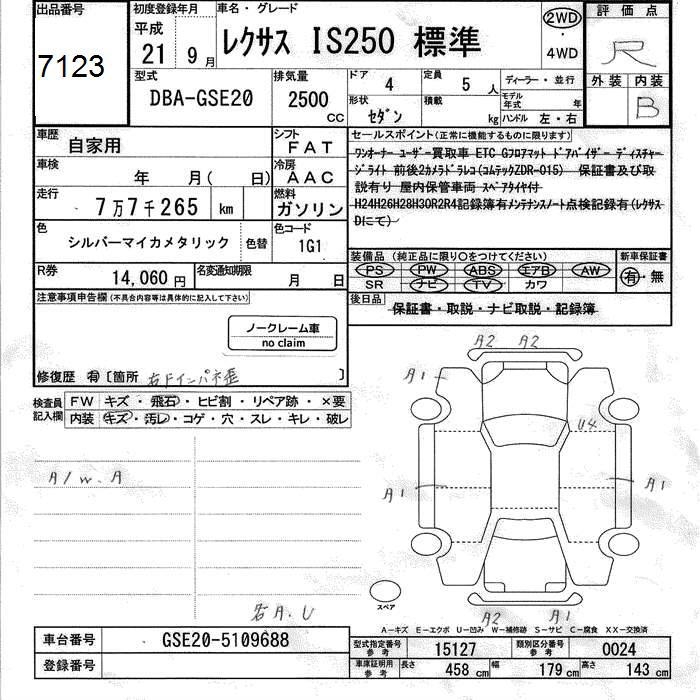 出品番号 初度登録年月 車名・グレード 評価点
7123 平成 21 9月 レクサス IS250 標準 2WD ・ 4WD R
外装 内装
B
型式 排気量 ドア 4 定員 5人 ディーラー・並行
DBA-GSE20 2500cc 形状 セダン 積載 kg モデル年式 年
ハンドル 左・右
車歴 自家用 シフト FAT セールスポイント(正常に機能するものに限ります)
車検 年 月( 日) 冷房 AAC
走行 7万7千265 km 燃料 ガソリン
ワンオーナー ユーザー買取車 ETC Gフロアマット ドアバイザー ディスチャー
ジライト 前後2カメラドラレコ(コムテックZDR-015) 保証書及び取
説有り 屋内保管車両 スペアタイヤ付
H24H26H28H30R2R4記録簿有メンテナンスノート点検記録有(レクサス
Dにて)
色 シルバーマイカメタリック 色替 色コード 1G1
装備品(純正品に限り○をつけてください) 新車保証書
PS PW ABS エアB AW 有・無
SR ナビ TV カワ
R券 14,060円 名変通知期限 月 日
後日品 保証書・取説・ナビ取説・記録簿
注意事項申告欄(不具合内容等は具体的に記入して下さい)
ノークレーム車
no claim
修復歴 有 [箇所 右Fインパネ歪 ]
検査員記入欄 FW キズ・飛石・ヒビ割・リペア跡・×要
内装 キズ・汚レ・コゲ・穴・スレ・キレ・破レ
A2 A2
A1
U4
A/W.A
A1 A1
スペア
右A.U
A2 A1
A-キズ E-エクボ U-凹み W-補修跡 S-サビ C-腐食 XX-交換済
車台番号 GSE20-5109688
登録番号
型式指定番号 参考 15127 類別区分番号 参考 0024
車庫証明用 参考 長さ 458cm 幅 179cm 高さ 143cm